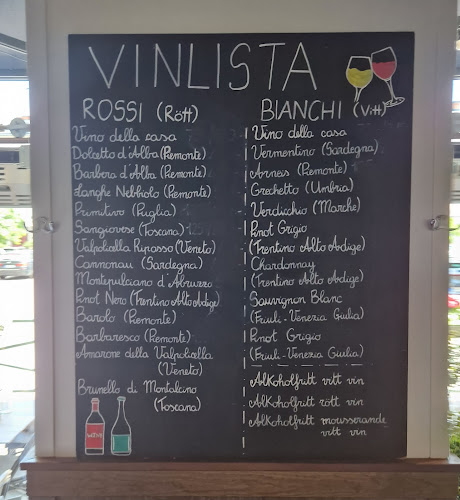 VINLISTA
ROSSI (Rött)
Vino della casa
Dolcetto d'Alba (Piemonte)
Barbera d'Alba (Piemonte)
Langhe Nebbiolo (Piemonte)
Primitivo (Puglia)
Sangiovese (Toscana)
Valpolicella Ripasso (Veneto)
Cannonau (Sardegna)
Montepulciano d'Abruzzo
Pinot Nero (Trentino Alto Adige)
Barolo (Piemonte)
Barbaresco (Piemonte)
Amarone della Valpolicella
(Veneto)
Brunello di Montalcino
(Toscana)
BIANCHI (Vitt)
Vino della casa
Vermentino (Sardegna)
Arneis (Piemonte)
Grechetto (Umbria)
Verdicchio (Marche)
Pinot Grigio
(Trentino Alto Adige)
Chardonnay
(Trentino Alto Adige)
Sauvignon Blanc
(Friuli-Venezia Giulia)
Pinot Grigio
(Friuli-Venezia Giulia)
Alkoholfritt vitt vin
Alkoholfritt rött vin
Alkoholfritt mousserande
vitt vin